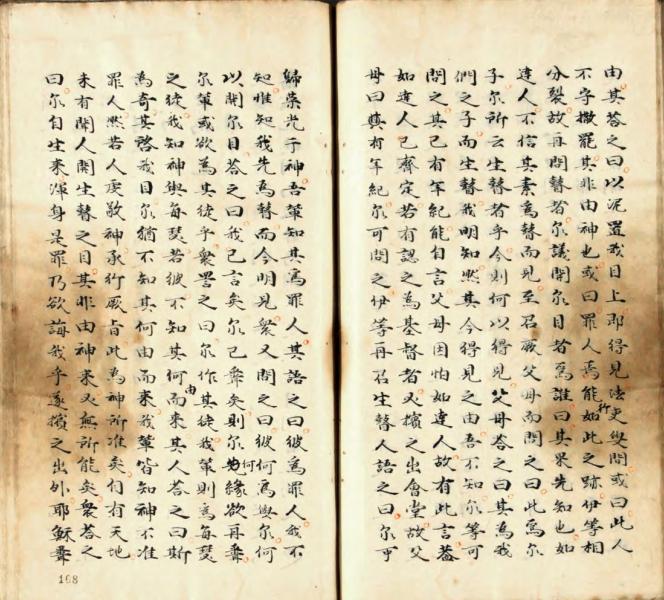 由其答之曰以泥置我目上即得見法吏叟問或曰此人
不守撒罷其非由神也或曰罪人焉能行如此之跡伊等相
分裂故再問瞽者尔議開尔目者爲誰曰其果先知也如
達人不信其素爲瞽而見至召厥父母而問之曰此爲尔
子尔所云生瞽者乎今則何以得見父母答之曰其爲我
們之子而生瞽我明知然其今得見之由吾不知尔等可
問之其已有年紀能自言父母因怕如達人故有此言蓋
如達人已齊定若有認之為基督者必擯之出會堂故父
母曰其有年紀尔可問之伊等再召生瞽人語之曰尔可
歸榮光于神吾輩知其爲罪人其語之曰彼爲罪人我不
知惟知我先爲瞽而今明見衆又問之曰彼何爲與尔何
以開尔目答之曰我已言矣尔已聽矣則尔何緣欲再聽
尔輩或欲爲其徒乎衆詈之曰尔作其徒我輩則爲每瑟
之徒我知神與每瑟若彼不知其何由而來其人答之曰斯
爲奇其啓我目尔猶不知其何由而來我輩皆知神不准
罪人然若人虔敬神承行厥旨此爲神所准矣自有天地
未有聞人開生瞽之目其非由神來必無所能矣衆答之
曰尔自生來渾身是罪乃欲誨我乎遂擯之出外耶穌聽
168